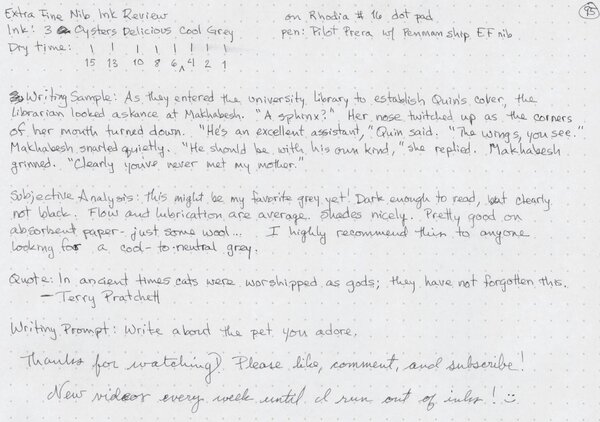 Extra Fine Nib Ink Review on Rhodia #16 dot pad 95
Ink: 3 Oysters Delicious Cool Grey pen: Pilot Prera w/ Penmanship EF nib
Dry time: | | | | | | | | |
15 13 10 8 6 ^ 4 2 1
Writing Sample: As they entered the university library to establish Quin's cover, the
librarian looked askance at Makhabesh. "A sphinx?" Her nose twitched up as the corners
of her mouth turned down. "He's an excellent assistant," Quin said. "The wings, you see."
Makhabesh snarled quietly. "He should be with his own kind," she replied. Makhabesh
grinned. "Clearly you've never met my mother."
Subjective Analysis: This might be my favorite grey yet! Dark enough to read, but clearly
not black. Flow and lubrication are average. Shades nicely. Pretty good on
absorbent paper - just some wool... I highly recommend this to anyone
looking for a cool-to-neutral grey.
Quote: In ancient times cats were worshipped as gods; they have not forgotten this.
- Terry Pratchett
Writing Prompt: Write about the pet you adore.
Thanks for watching! Please like, comment, and subscribe!
New videos every week until I run out of inks! :)